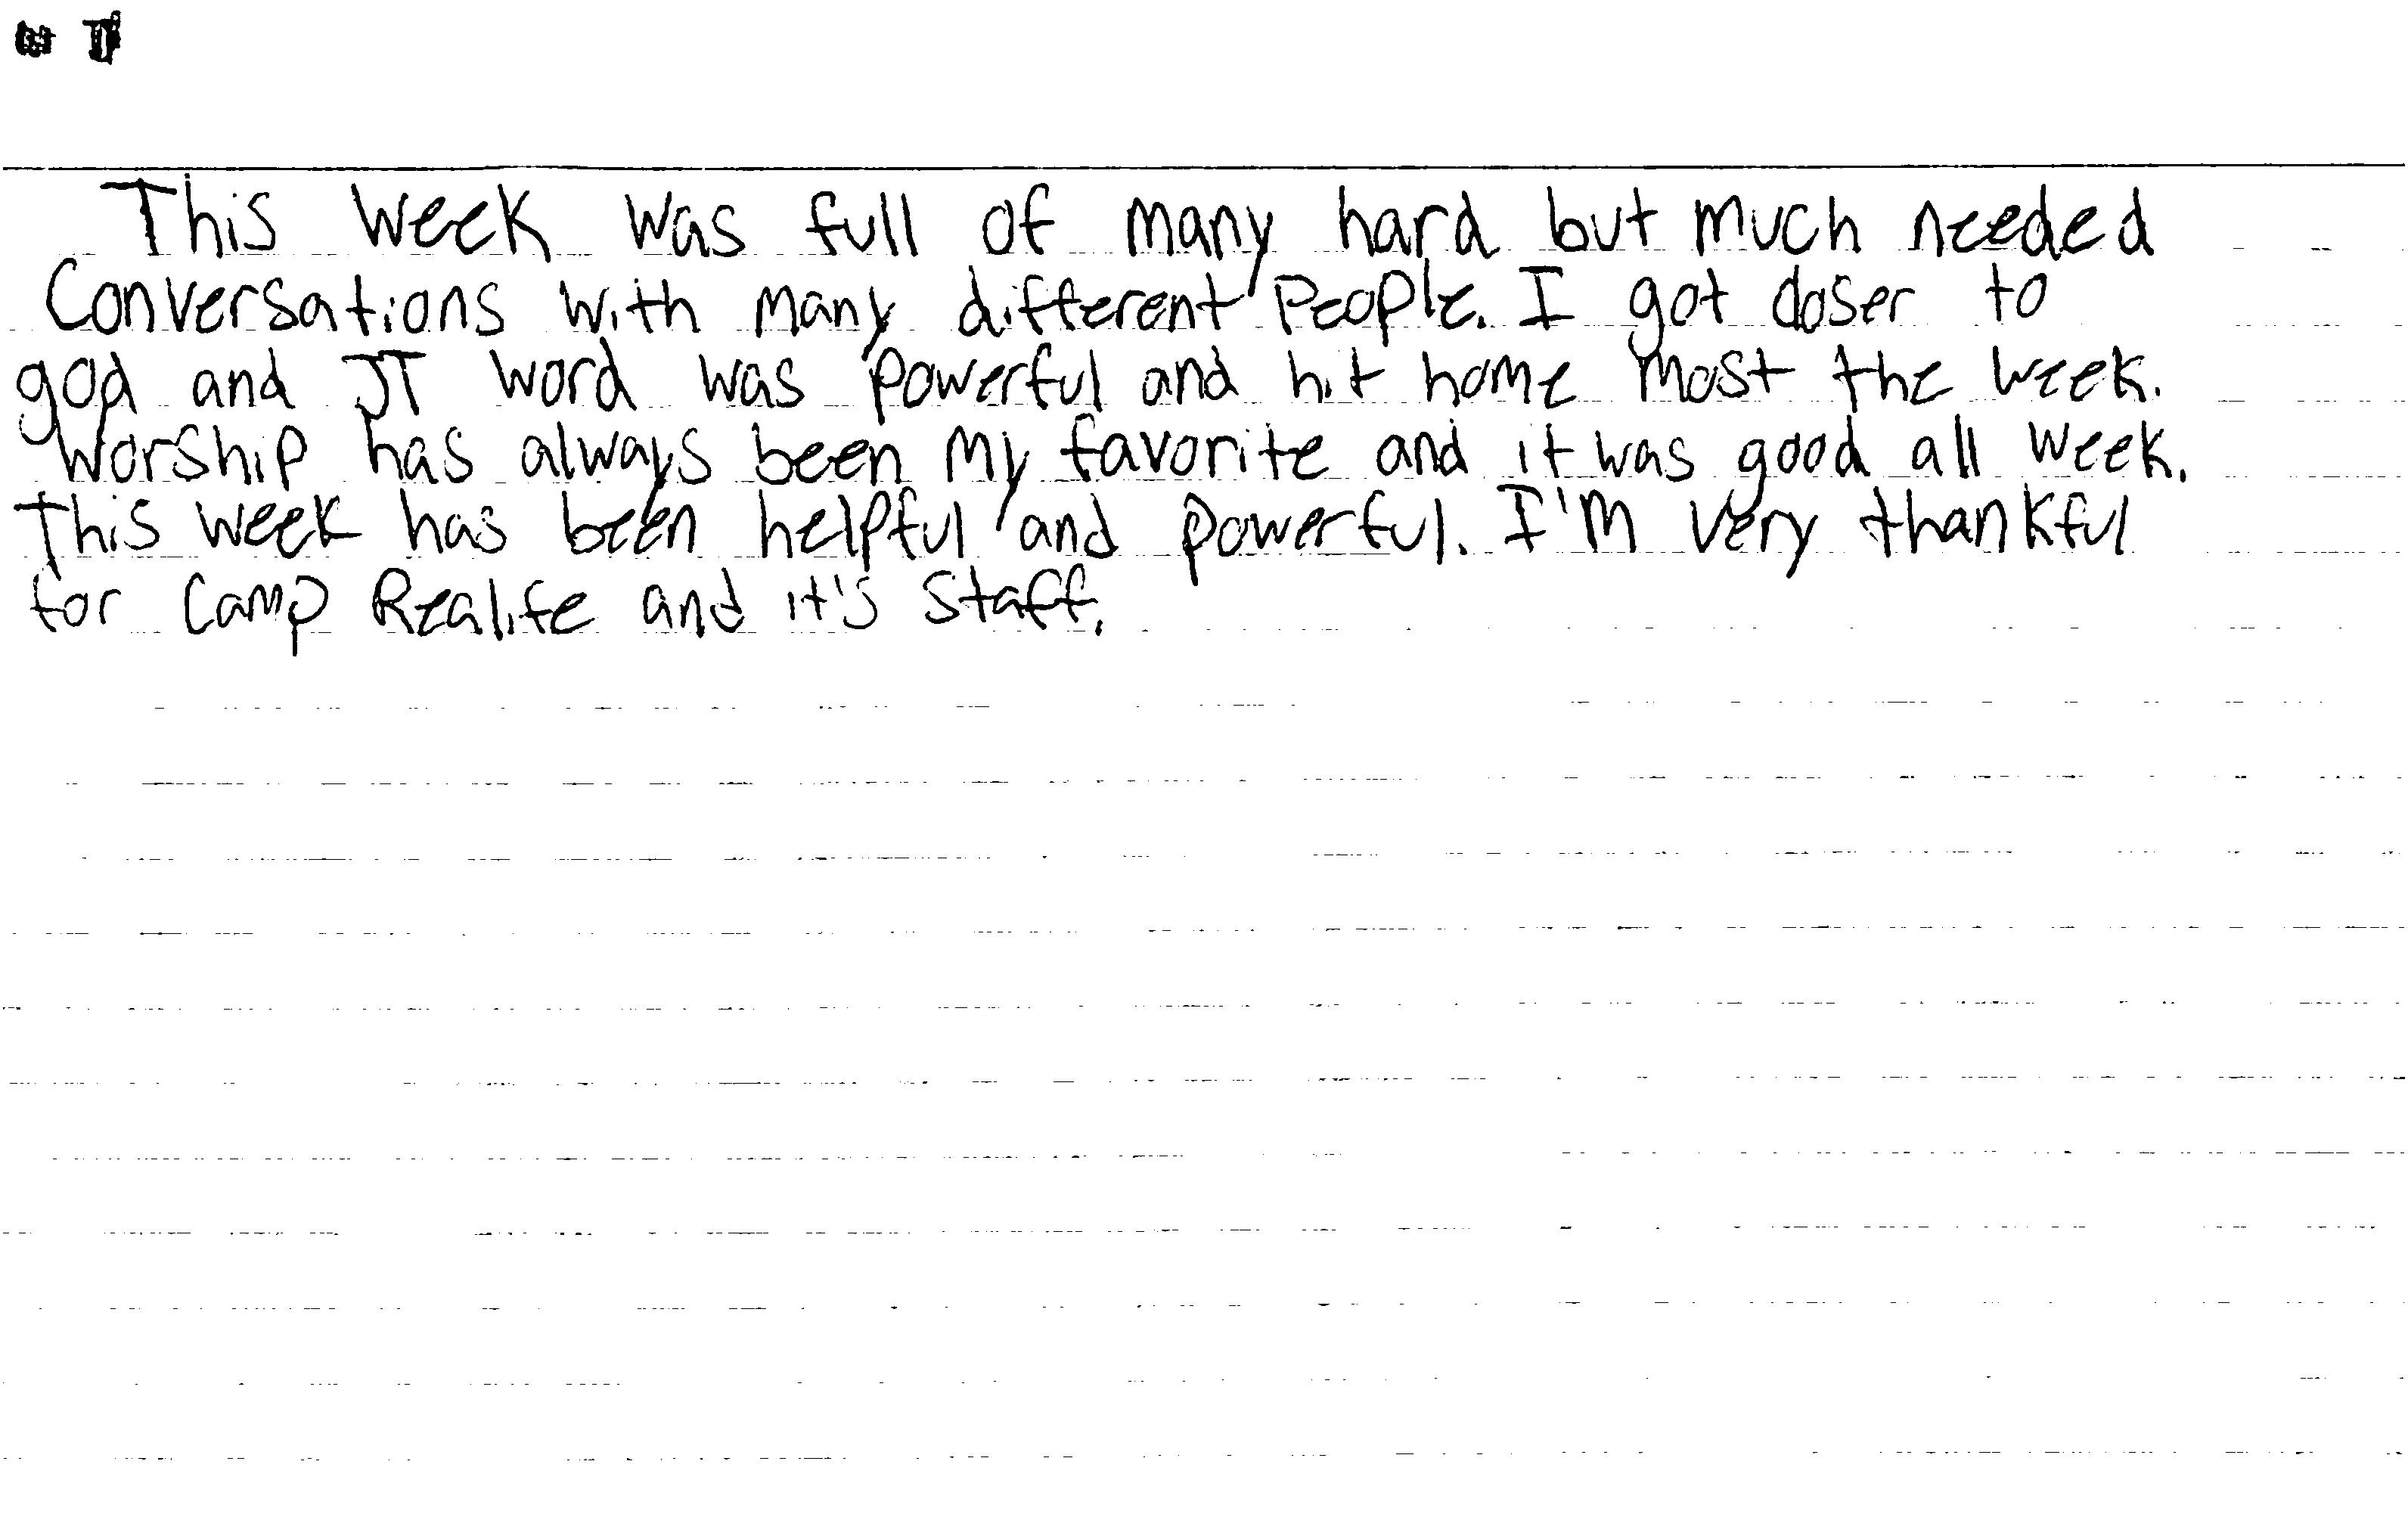 This week was full of many hard but much needed
Conversations with many different People. I got closer to
god and JT word was powerful and hit home most the week.
Worship has always been my favorite and it was good all week.
This week has been helpful and powerful. I'm very thankful
for Camp Realife and it's staff.